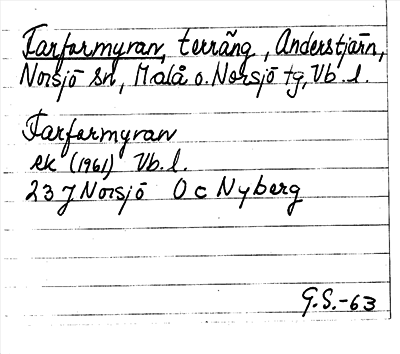 Farfarmyran, terräng, Anderstjärn,
Norsjö sn, Malå o. Norsjö tg, Vb. l.
Farfarmyran
ek (1961) Vb. l.
23 J Norsjö O c Nyberg
G.S.-63